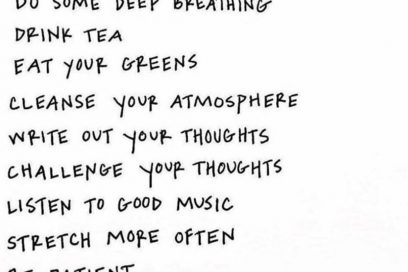 DO SOME DEEP BREATHING
DRINK TEA
EAT YOUR GREENS
CLEANSE YOUR ATMOSPHERE
WRITE OUT YOUR THOUGHTS
CHALLENGE YOUR THOUGHTS
LISTEN TO GOOD MUSIC
STRETCH MORE OFTEN
BE PATIENT